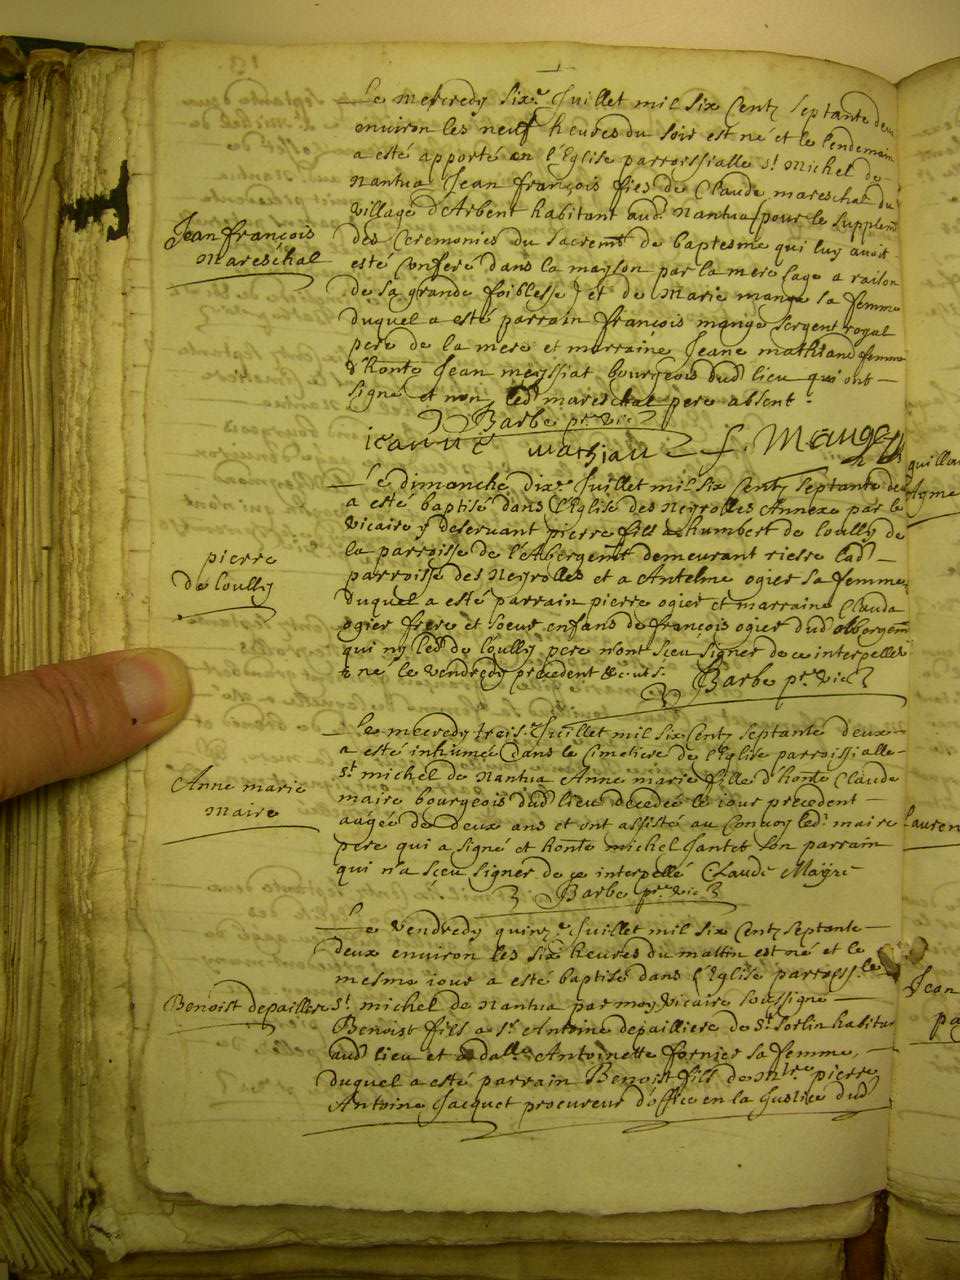 Le mercredy six.e Juillet mil six Centz septante deux
environ les neuf heures du soir est né et le lendemain
a esté apporté en l'Eglise parroissialle s.t michel de
Nantua Jean françois fils de Claude mareschal du
village d'Arbent habitant aud. Nantua (pour le supplem.t
Jean françois
Mareschal
des Ceremonies du sacrem.t de baptesme qui luy avoit
esté Conferé dans la mayson par la mere sage a raison
de sa grande foiblesse) et de Marie mange sa femme
duquel a esté parrain françois mange sergent royal
pere de la mere et marraine Jeane mathiand femme
d'honte Jean meyssiat bourgeois dud. lieu qui ont
signé et non led. mareschal pere absent.
Barbe p.r vic.
ieanne mathian f. Mange
Le dimanche dix.e Juillet mil six Centz septante deux
a esté baptisé dans l'Eglise des Neyrolles Annexe par le
vicaire y deservant pierre fils a humbert de Loully de
la parroisse de l'Abergem.t demeurant riere lad.
pierre
de Loully
parroisse des Neyrolles et a Antelme ogier sa femme
duquel a esté parrain pierre ogier et marraine Clauda
ogier frere et soeur enfans de françois ogier dud. Abergem.t
qui ny led. de Loully pere n'ont sceu signer de ce interpellés
né le vendredy precedent
Barbe p.r vic.
Le mecredy treis.e Juillet mil six Centz septante deux
a esté inhumée dans le Cimetiere de l'Eglise parroissialle
s.t michel de Nantua Anne marie fille d'honte Claude
Anne marie
maire
maire bourgeois dud. lieu decedée le iour precedent
augée de deux ans et ont assisté au Convoy led. maire
pere qui a signé et honte michel Jantet son parrain
qui n'a sçeu signer de ce interpellé Claude Mayre
Barbe p.r vic.
Le vendredy quinz.e Juillet mil six Centz septante
deux environ les six heures du mattin est né et le
mesme iour a esté baptisé dans l'Eglise parroiss.le
Benoist depailliere
s.t michel de Nantua par moy vicaire soussigné
Benoist fils a s.r Antoine depailliere de s.t sorlin habitant
aud. lieu et a dall.e Antoinette fornier sa femme,
duquel a esté parrain Benoist fils de M.tre pierre
Antoine Jacquet procureur d'office en la Justice dud.
Jean